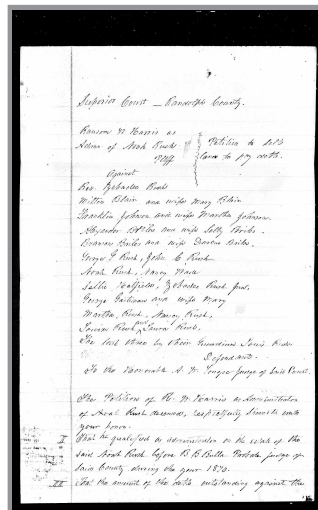 Superior Court — Randolph County.
Ransom W Harris as
Admr of Noah Rush
Plff
Petition to sell
land to pay debts.
Against
Rev. Zebedee Rush
Milton Blair and wife Mary Blair
Franklin Johnson and wife Martha Johnson
and wife
and wife
George Rush, John C Rush
Noah Rush, Nancy
Sallie Hatfield, Zebedee Rush Jun,
George and wife Mary
Martha Rush, Nancy Rush,
Louisa Rush and Laura Rush.
The last three by their Guardian Lewis
Defendants.
To the Honorable A. W. Tourgee Judge of said Court.
The Petition of R. W Harris as Administrator
of Noah Rush deceased, respectfully sheweth unto
your honor.
I
That he qualified as administrator on the estate of the
said Noah Rush before B B Bulla Probate Judge of
said County during the year 1870.
II
That the amount of the debts outstanding against the